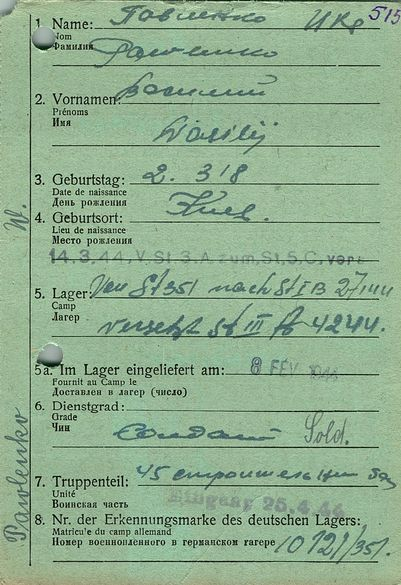 515
1. Name: Павленко Ukr
Nom
Фамилия
2. Vornamen: Василий
Prénoms
Имя
Wasilij
3. Geburtstag: 2. 3 18
Date de naissance
День рождения
4. Geburtsort: Kiev.
Lieu de naissance
Место рождения
14.3.44, V. St. 3. A. zum St. 5. C, vers
5. Lager: Von St 351 nach St I B 27 I 44
Camp
Лагер
versetzt St III A 4.2.44.
5a. Im Lager eingeliefert am: 8 FEV. 1944
Fournit au Camp le
Доставлен в лагер (число)
6. Dienstgrad:
Grade
Чин
Солдат Sold.
7. Truppenteil: 45 строительный
Unité
Воинская часть
Eingang 25.4.44
8. Nr. der Erkennungsmarke des deutschen Lagers:
Matricu'e du camp allemand
Номер военнопленного в германском гагере 10121/351.
Pawlenko W.